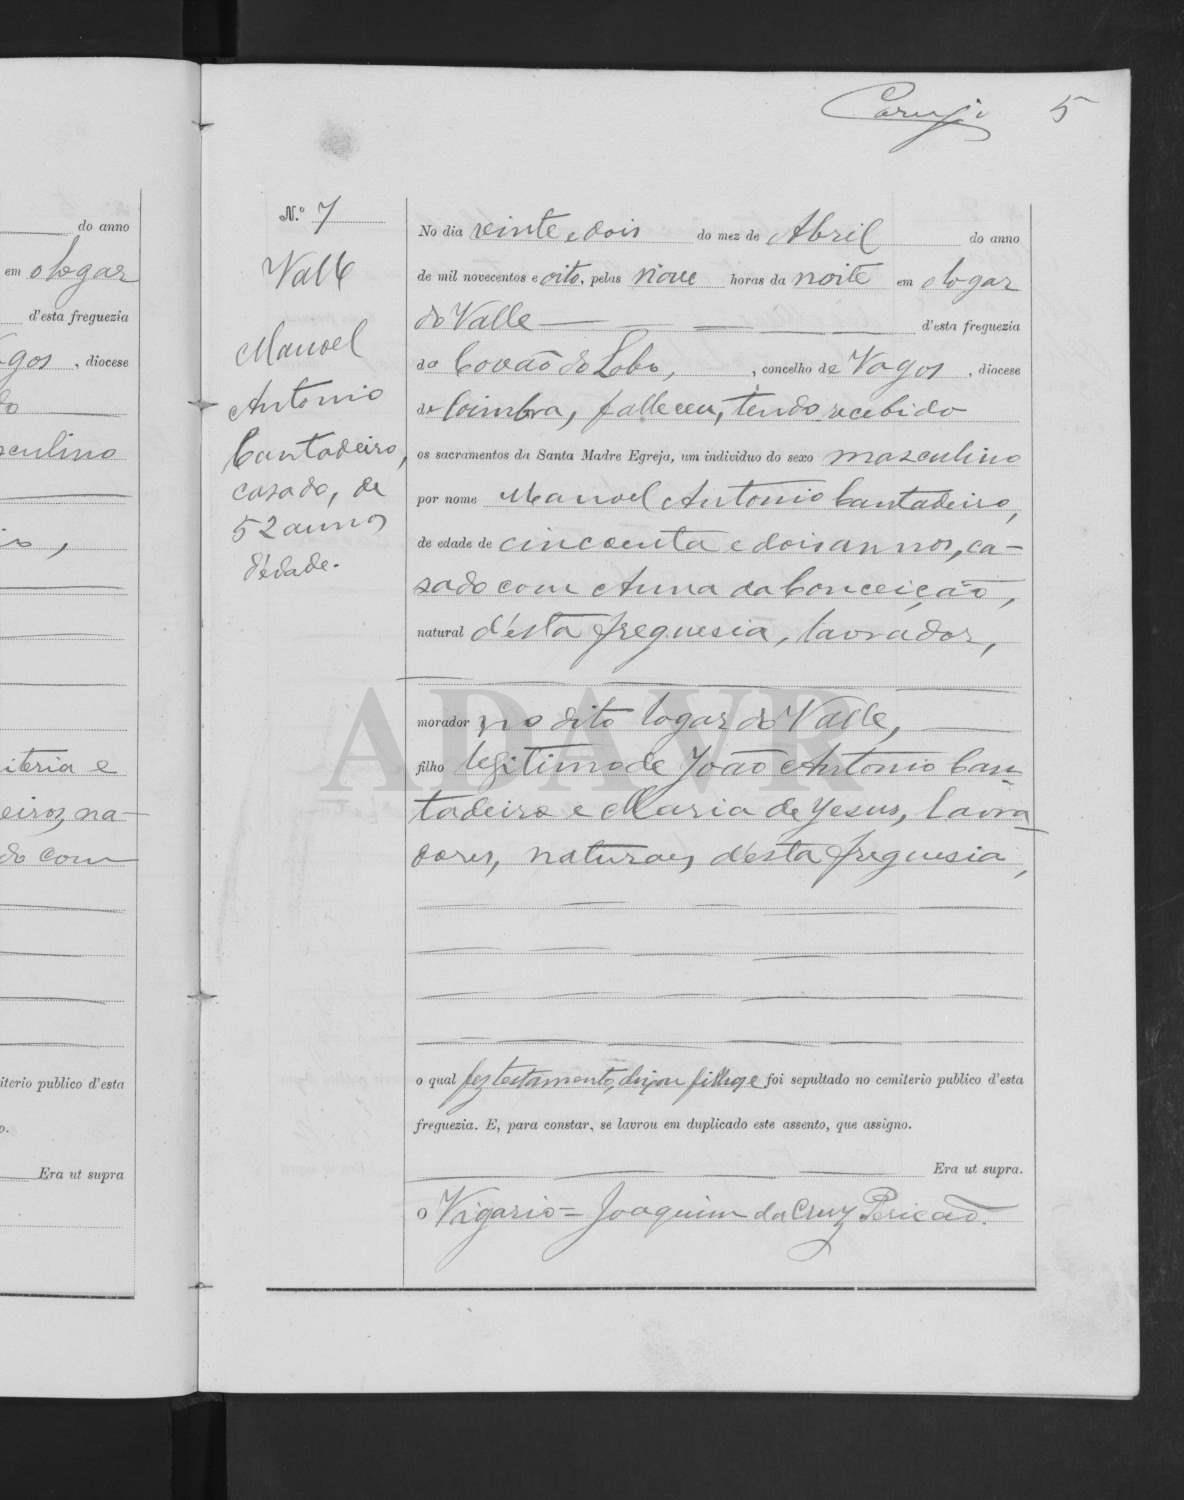 do anno
em o logar
d'esta freguezia
gos, diocese
sculino
iteria e
eiros, na-
do com
iterio publico d'esta
o.
Era ut supra
5
N.º 7
Valle
Manoel
Antonio
Cantadeiro,
casado, de
52 annos
d'edade.
No dia vinte e dois do mez de Abril do anno
de mil novecentos e oito, pelas nove horas da noite em o logar
do Valle d'esta freguezia
do Covão do Lobo, concelho de Vagos, diocese
de Coimbra, falleceu, tendo recebido
os sacramentos da Santa Madre Egreja, um individuo do sexo masculino
por nome Manoel Antonio Cantadeiro,
de edade de cincoenta e dois annos, ca-
sado com Anna da Conceição,
natural d'esta freguesia, lavrador,
ADAVR
morador no dito logar do Valle,
filho legitimo de João Antonio Can-
tadeiro e Maria de Jesus, lavra-
dores, naturaes d'esta freguesia,
o qual fez testamento, deixou filhos e foi sepultado no cemiterio publico d'esta
freguezia. E, para constar, se lavrou em duplicado este assento, que assigno.
Era ut supra.
O Vigario = Joaquim da Cruz Pericão.